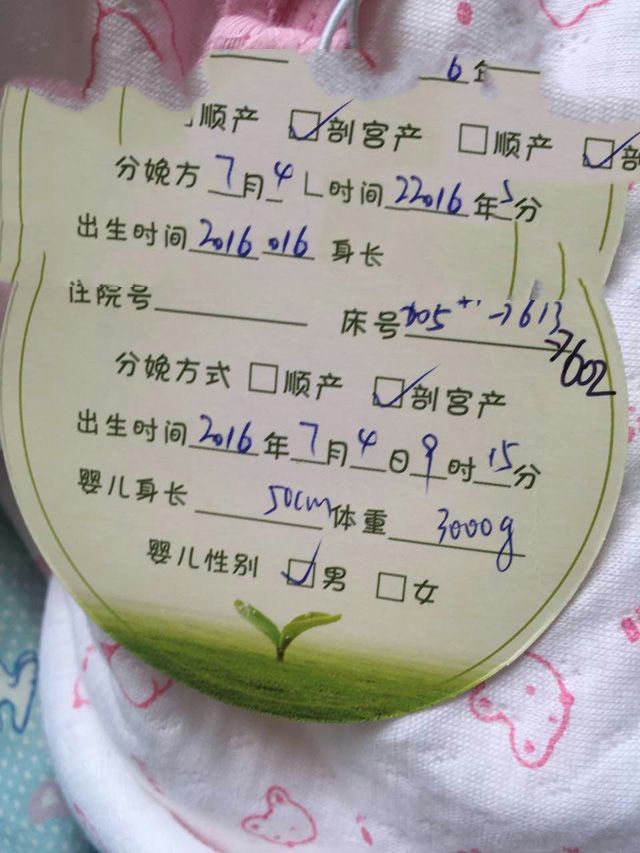 6年
顺产 剖宫产 顺产 剖
分娩方 7月4 时间 22016年5分
出生时间 2016 016 身长
住院号 床号 →613
→602
分娩方式 顺产 剖宫产
出生时间 2016年7月4日9时15分
婴儿身长 50cm 体重 3000g
婴儿性别 男 女